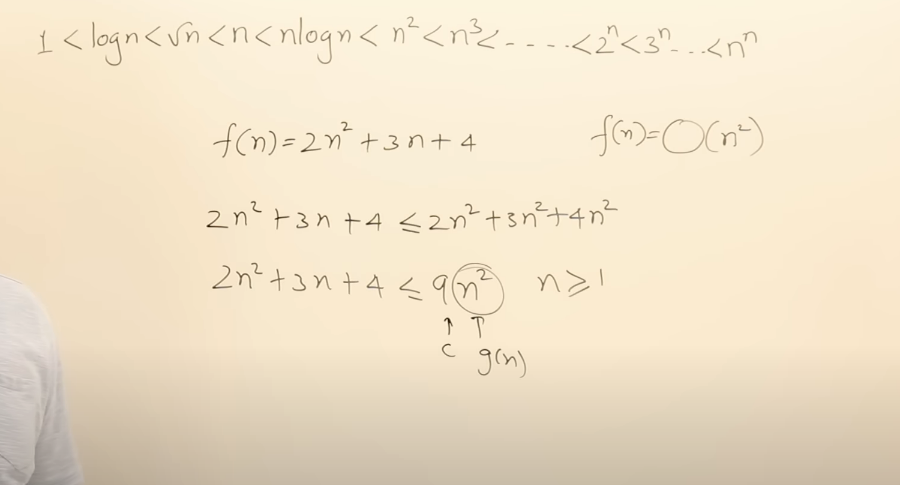 1 < logn < √n < n < nlogn < n² < n³ < - - - - < 2ⁿ < 3ⁿ - - - < nⁿ
f(n) = 2n² + 3n + 4 f(n) = O(n²)
2n² + 3n + 4 ≤ 2n² + 3n² + 4n²
2n² + 3n + 4 ≤ 9n² n ≥ 1
↑ ↑
c g(n)